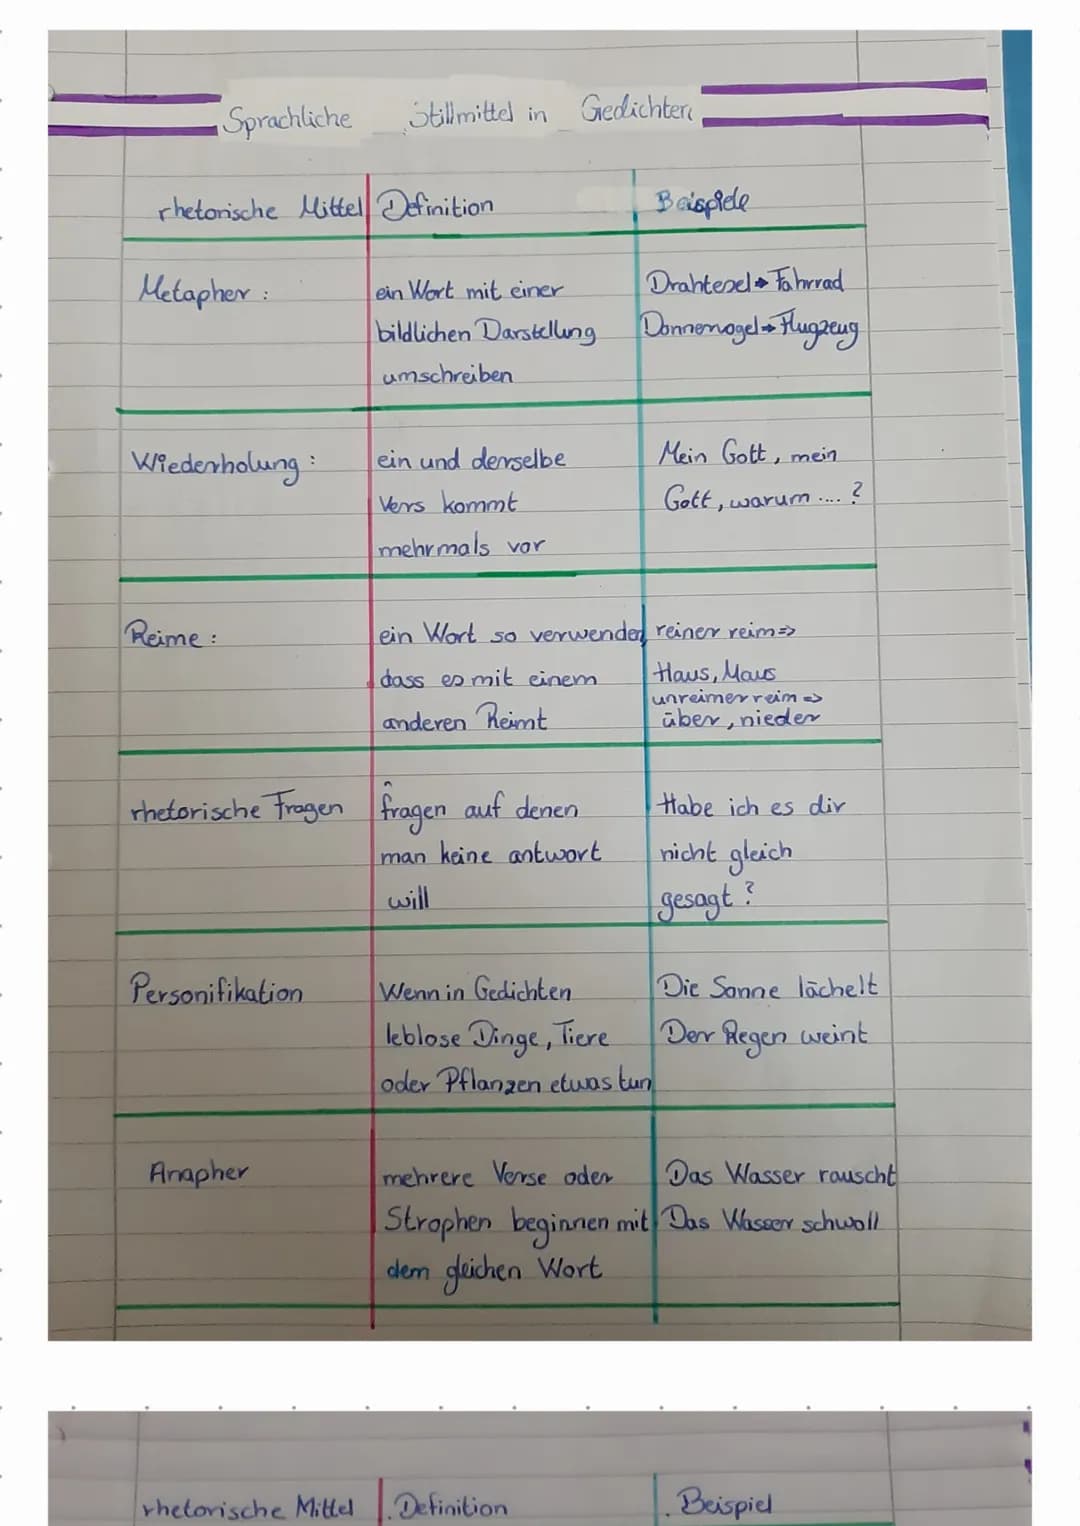 Sprachliche Stillmittel in Gedichten
rhetorische Mittel Definition Beispiele
Metapher : ein Wort mit einer Drahtesel → Fahrrad
bildlichen Darstellung Donnervogel → Flugzeug
umschreiben
Wiederholung : ein und derselbe Mein Gott, mein
Vers kommt Gott, warum .... ?
mehrmals vor
Reime : ein Wort so verwenden reiner reim =>
dass es mit einem Haus, Maus
unreimer reim =>
anderen Reimt über, nieder
rhetorische Fragen fragen auf denen Habe ich es dir
man keine antwort nicht gleich
will gesagt ?
Personifikation Wenn in Gedichten Die Sonne lächelt
leblose Dinge, Tiere Der Regen weint
oder Pflanzen etwas tun
Anapher mehrere Verse oder Das Wasser rauscht
Strophen beginnen mit Das Wasser schwoll
dem gleichen Wort
rhetorische Mittel Definition Beispiel